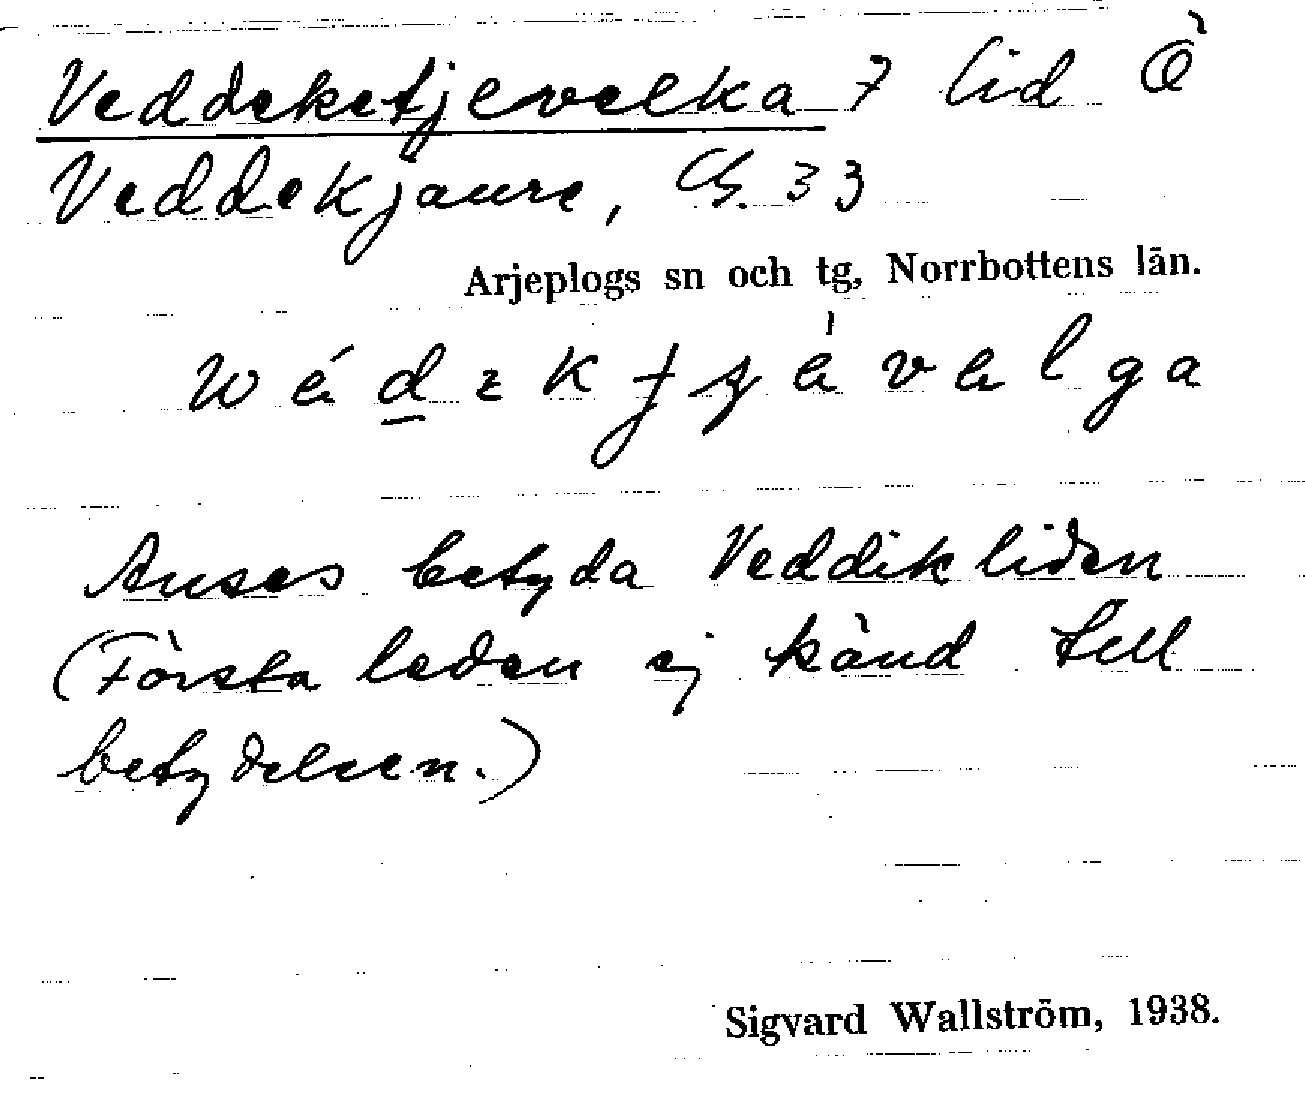 Veddeketjevelka 7 lid Ö
Veddekjaure, Gb. 33
Arjeplogs sn och tg, Norrbottens län.
Anses betyda Veddikliden
(Första leden ej känd till
betydelsen.)
Sigvard Wallström, 1938.